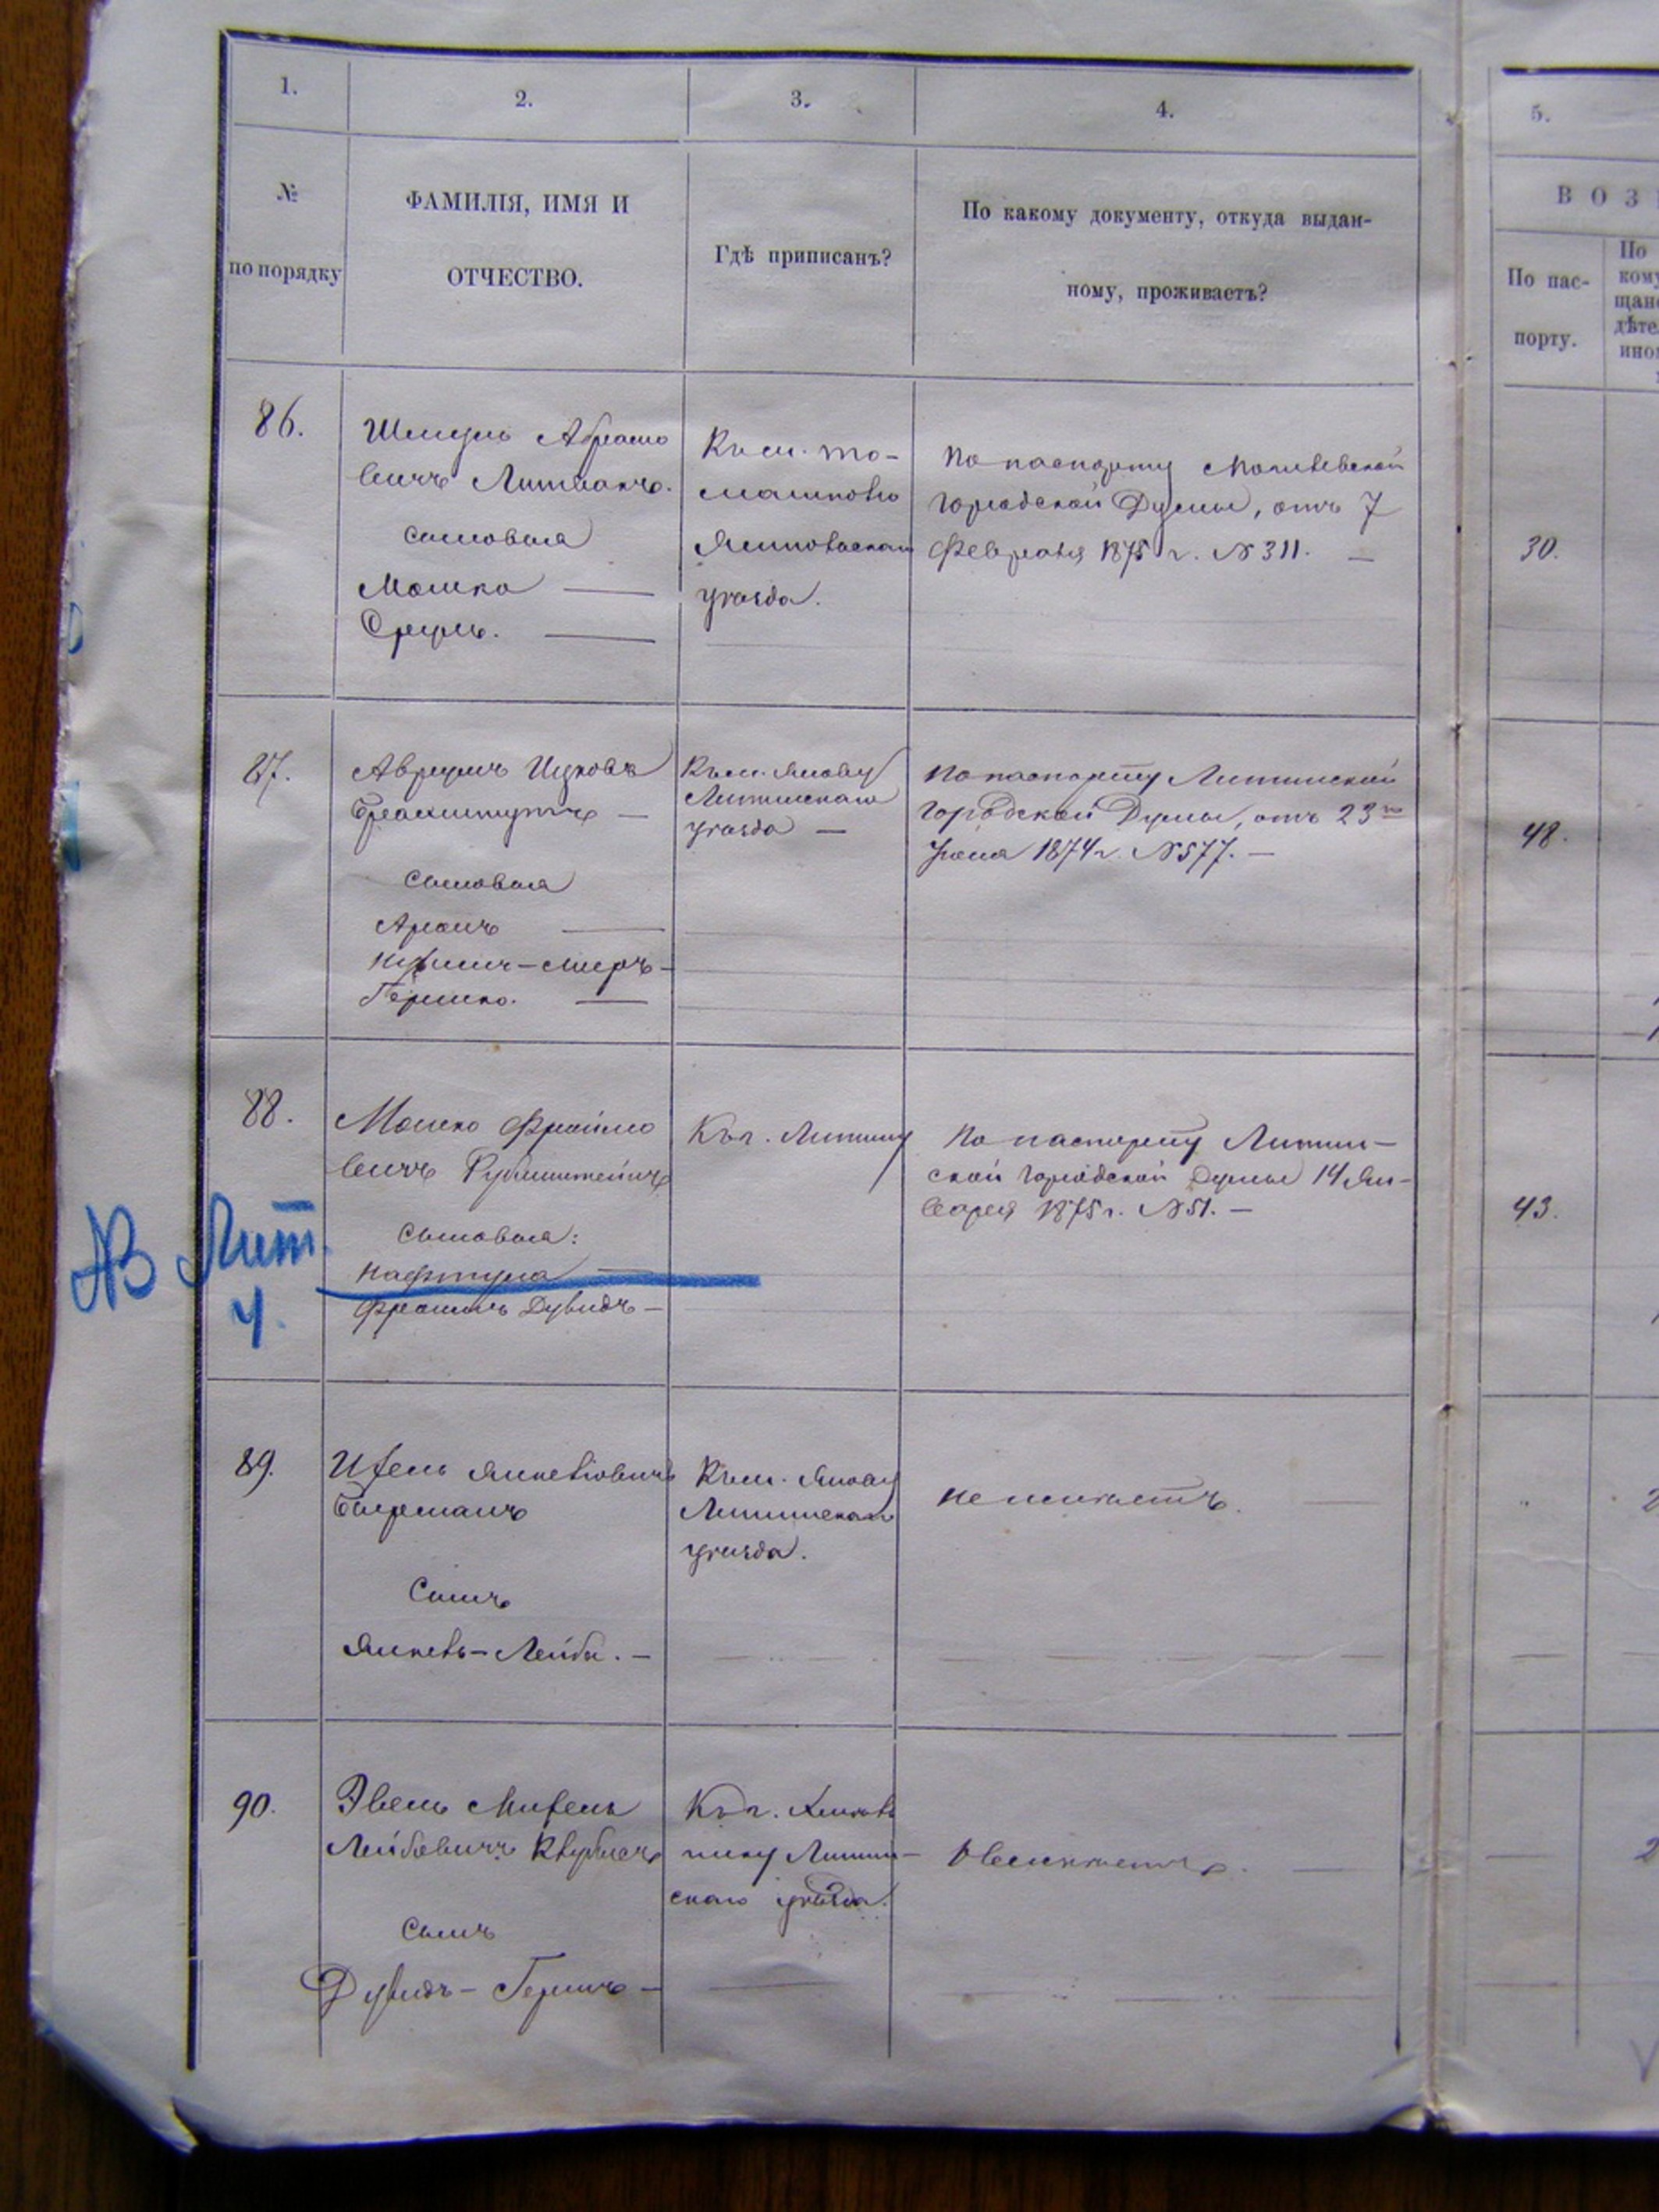 1.
2.
3.
4.
5.
№
по порядку
ФАМИЛІЯ, ИМЯ И
ОТЧЕСТВО.
Гдѣ приписанъ?
По какому документу, откуда выдан-
ному, проживаетъ?
ВОЗ
По пас-
порту.
По
кому
86.
Шмуль Абрамо
вичъ Литвакъ.
сыновья
Мошко —
Сруль. —
Къ м. То-
машполю
Ямпольскаго
уѣзда.
По паспорту Могилевской
городской Думы, отъ 7
Февраля 1875 г. № 311. —
30.
87.
Аврумъ Ицковъ
—
сыновья
Аронъ —
Гершко. —
Къ м. Янову
Литинскаго
уѣзда —
По паспорту Литинской
городской Думы, отъ 23го
1874 г. № 577. —
48.
88.
Мошко Фроимо
вичъ Рубинштейнъ
Сыновья:
Нафтула —
Фроимъ Дувидъ —
Къ г. Литину
По паспорту Литин-
ской городской Думы 14 Ян-
варя 1875 г. № 51. —
43.
Лит
4.
89.
Янкелевичъ
Берманъ
Сынъ
Янкель-Лейба. —
Къ м. Янову
Литинскаго
уѣзда.
90.
Лейбовичъ
сынъ
Дувидъ-Гершъ —
Къ г. Хмѣль
нику Литин-
скаго уѣзда.